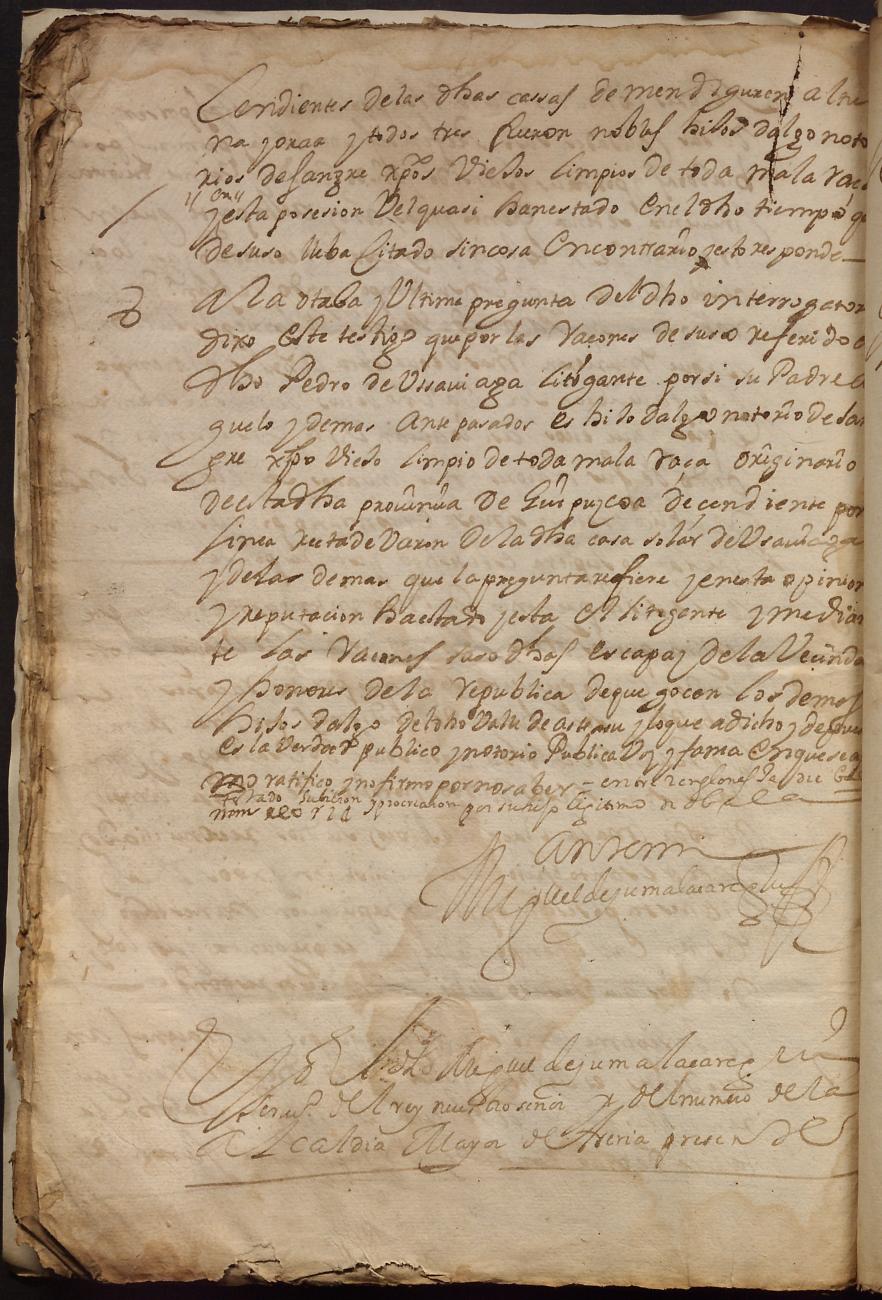 cendientes de las dhas cassas de mendiguren altu
na yoraa y todos tres fueron nobles hijos dalgo noto
rios de sangre xpos Viejos limpios de toda mala raça
"en"
y esta posesion Vel quasi han estado en el dho tiempo q
de suso lleba Citado sin cosa En contrario y esto responde
8 A la otaba y Ultima pregunta del dho interrogator
dixo este testigo que por las raçones de suso referido
dho Pedro de Ussaviaga litigante por si su Padre a
guelo y demas Ante pasados es hijo dalgo notorio de san
gre xpo Viejo limpio de toda mala raça originario
de esta dha provinçia de Guipuzcoa decendiente por
linea recta de varon de la dha casa solar de Usaviaga
y de las demas que la pregunta refiere y en esta opinion
y reputacion ha estado y esta el litigante y median
te las raçones suso dhas es capaz de la Vecinda
y honores de la republica de que gocen los demas
hijos dalgo del dho Valle de asteasu y lo que a dicho y depuesto
es la Verdad publico y notorio Publica Voz y fama En que se a
rmo ratifico y no firmo por no saber = entre renglones
testado y procreacion por su hijo legitimo
Ante mi
Miguel de jumalacarregui
Yo el dho Miguel de jumalacarregui
scriv.o del rey nuestro señor y del numero de la
Alcaldia Mayor de Areria presen